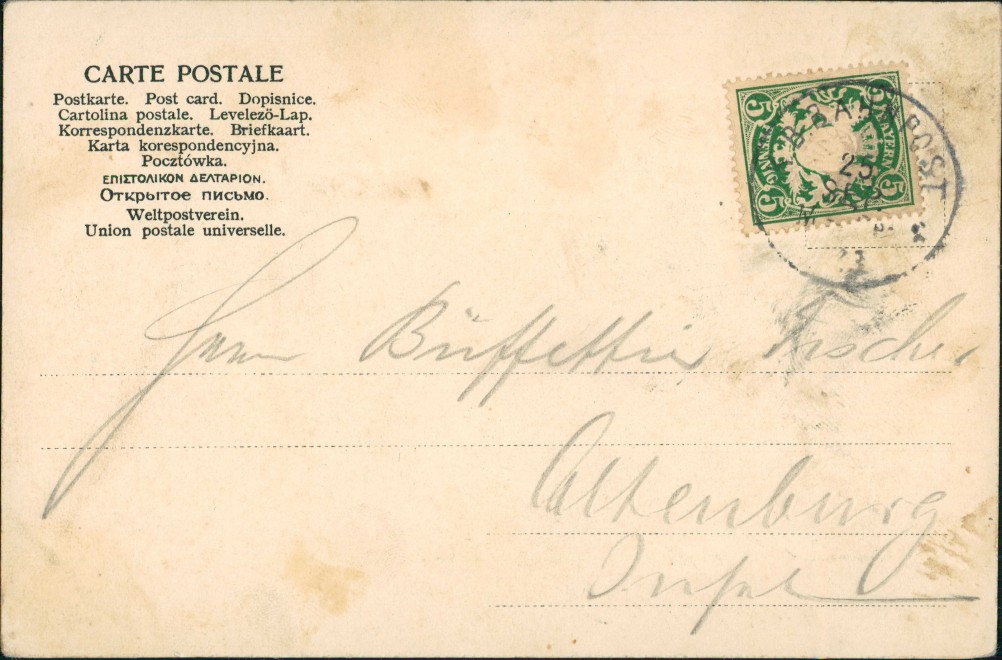 CARTE POSTALE
Postkarte. Post card. Dopisnice.
Cartolina postale. Levelező-Lap.
Korrespondenzkarte. Briefkaart.
Karta korespondencyjna.
Pocztówka.
ΕΠΙΣΤΟΛΙΚΟΝ ΔΕΛΤΑΡΙΟΝ.
Открытое письмо.
Weltpostverein.
Union postale universelle.
5 5
BAYERN
5 5
BAHNPOST
25
SEP
Herrn Büffettier Fischer
Altenburg
Insel